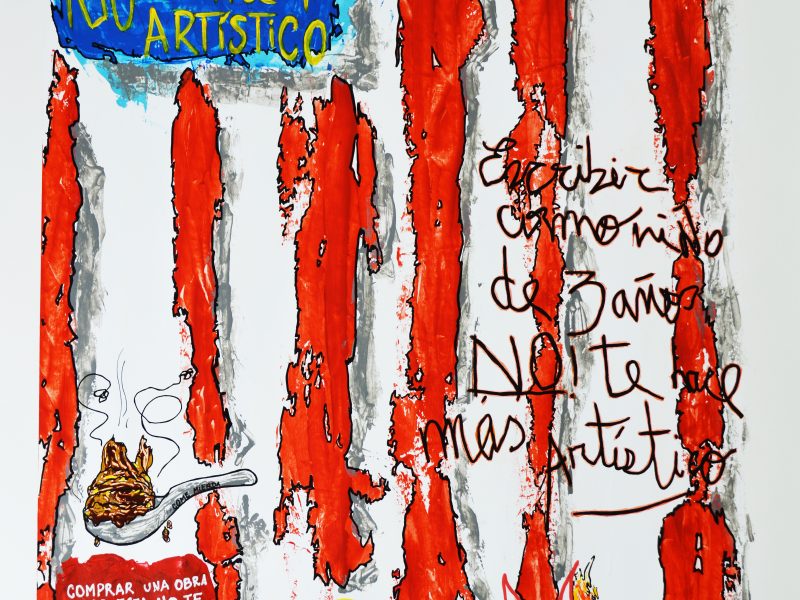 ARTÍSTICO
Escribir
como niño
de 3 años
NO! te hace
más artístico
COME MIERDA
COMPRAR UNA OBRA
NO TE